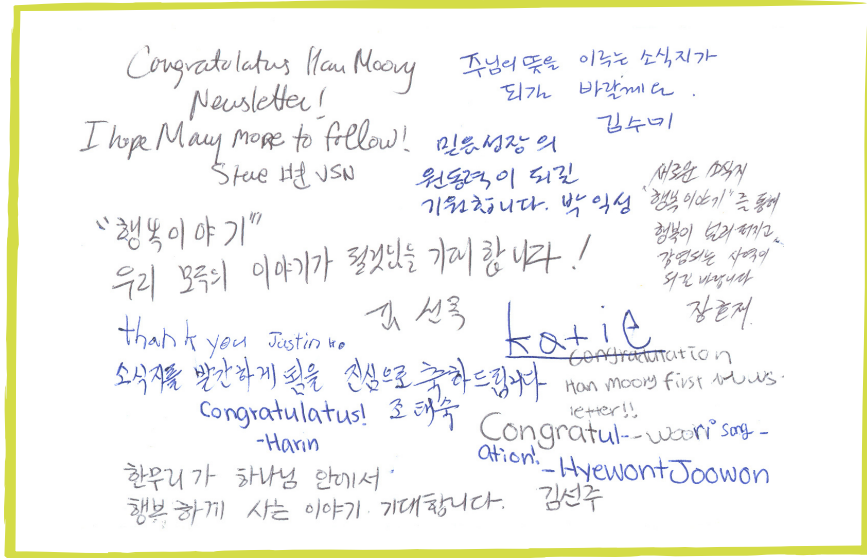 Congratulatus Han Moory
Newsletter!
I hope Many more to follow!
Steve 변 JSN
주님의 뜻을 이루는 소식지가
되길 바랄께요.
김수미
믿음성장의
원동력이 되길
기원합니다. 박익성
새로운 소식지
"행복이야기"를 통해
행복이 널리 퍼지고
감염되는 사역이
되길 바랍니다
"행복이야기"
우리 모두의 이야기가 될것임을 기대 합니다!
김 선욱
thank you Justin
katie
소식지를 발간하게 됨을 진심으로 축하드립니다
조태숙
Congratulatus!
-Harin
Congratulation
Han Moory first news
letter!!
Congratul--
ation!
-woori song-
-Hyewon+Joowon
한무리가 하나님 안에서
행복하게 사는 이야기 기대합니다.
김선주